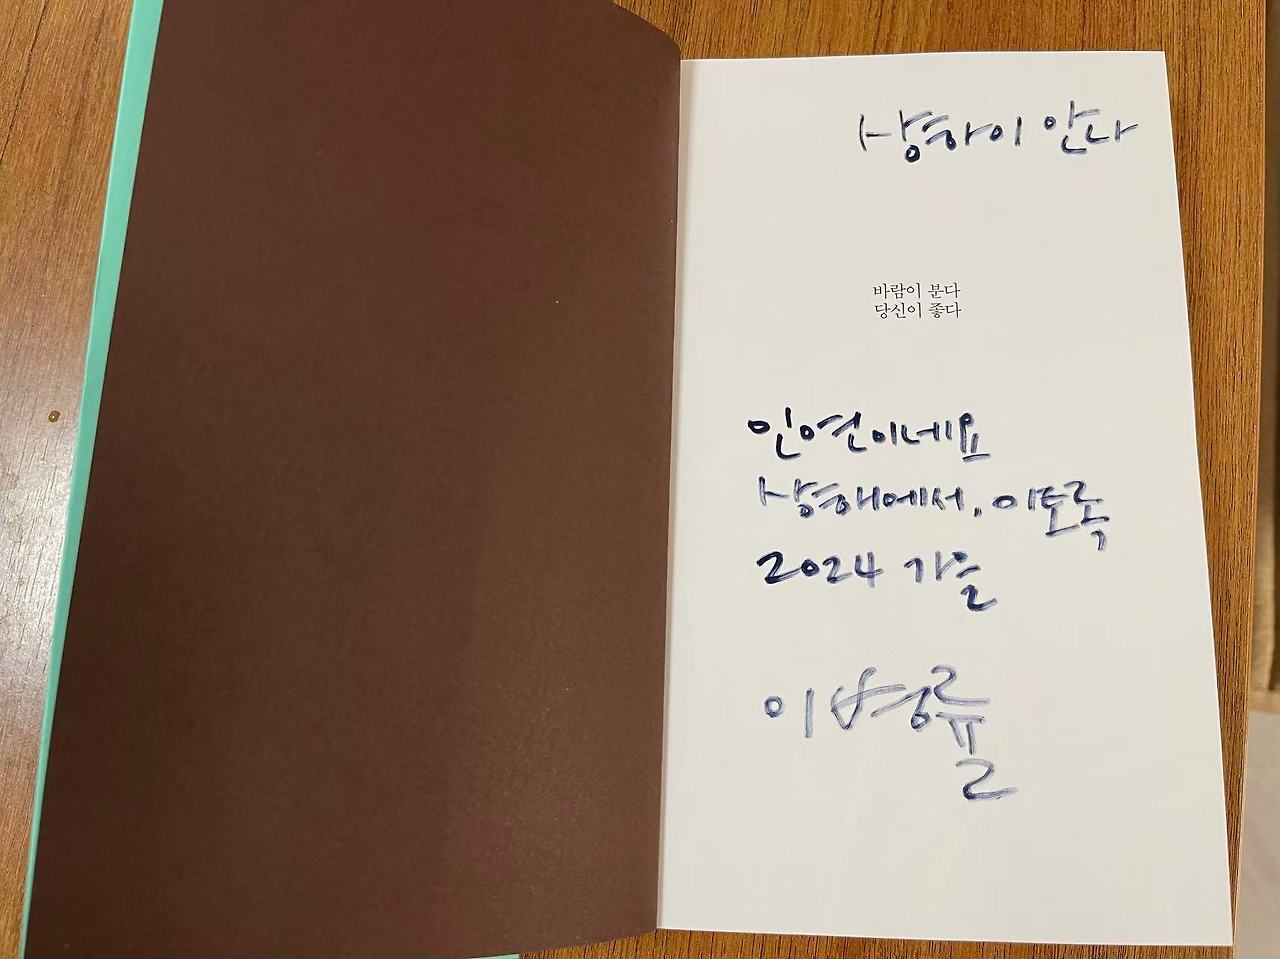 상하이 안나
바람이 분다
당신이 좋다
인연이네요
상해에서, 이토록
2024 가을
이병률